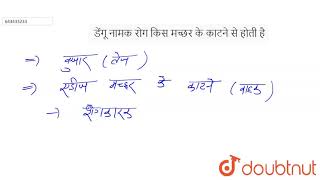 643435233
डेंगू नामक रोग किस मच्छर के काटने से होती है
=) बुखार (तेज)
=) एडीज मच्छर के काटने (वाहक)
→ रोगकारक
doubtnut